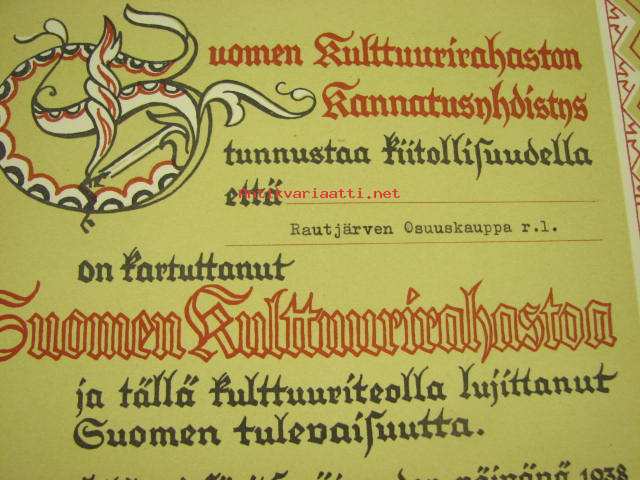 Suomen Kulttuurirahaston
Kannatusyhdistys
tunnustaa kiitollisuudella
että
antikvariaatti.net
Rautjärven Osuuskauppa r.l.
on kartuttanut
Suomen Kulttuurirahastoa
ja tällä kulttuuriteolla lujittanut
Suomen tulevaisuutta.
päivänä 1938